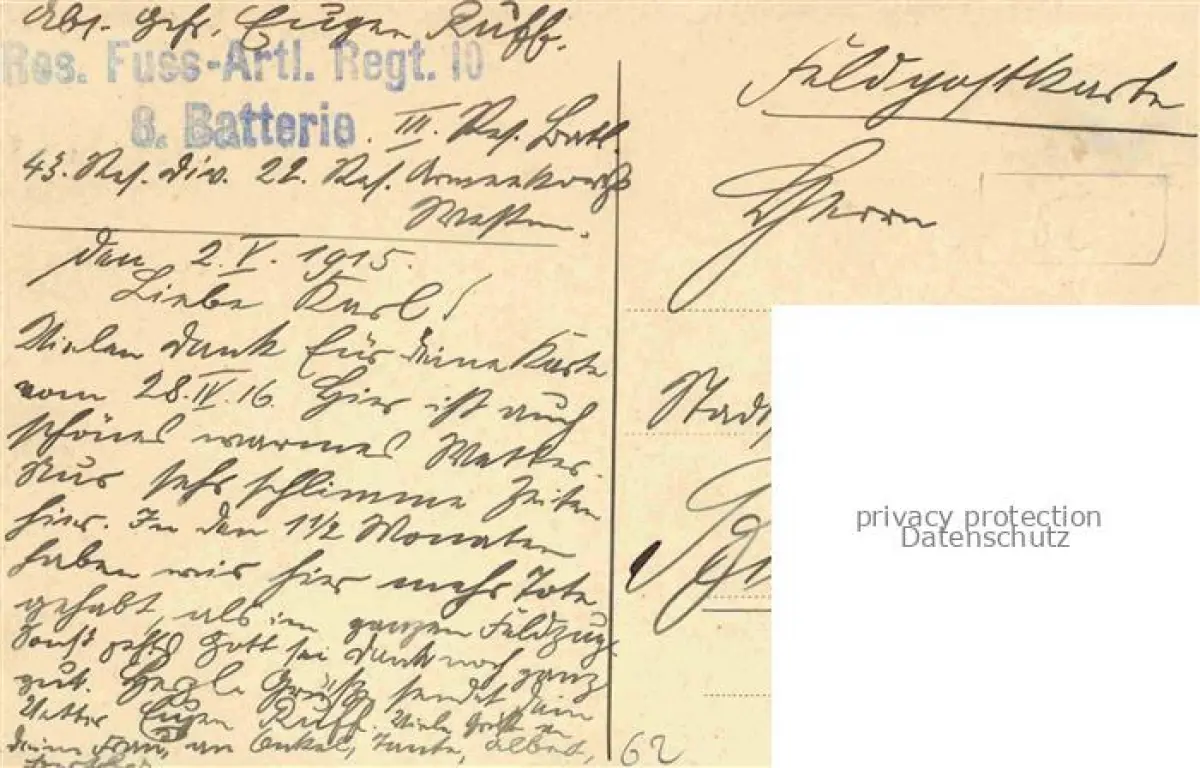 Abs. Gefr. Eugen Ruff.
Res. Fuss-Artl. Regt. 10
8. Batterie. III. Res. Batl.
43. Res. Div. 22. Res. Armeekorps
Westen.
den 2.V.1915.
Liebe Karl!
Vielen Dank für deine Karte
vom 28.IV.16. Hier ist auch
schönes warmes Wetter.
Nur sehr schlimme Zeiten
hier. In den 1 1/2 Monaten
haben wir hier mehr Tote
gehabt, als im ganzen Feldzug.
Sonst geht's Gott sei Dank noch ganz
gut. Herzl. Grüße sendet dein
Vetter Eugen Ruff. Viele Grüße an
deine Frau, an Onkel, Tante, Albert,
Feldpostkarte
Herrn
Stadt
62
privacy protection
Datenschutz